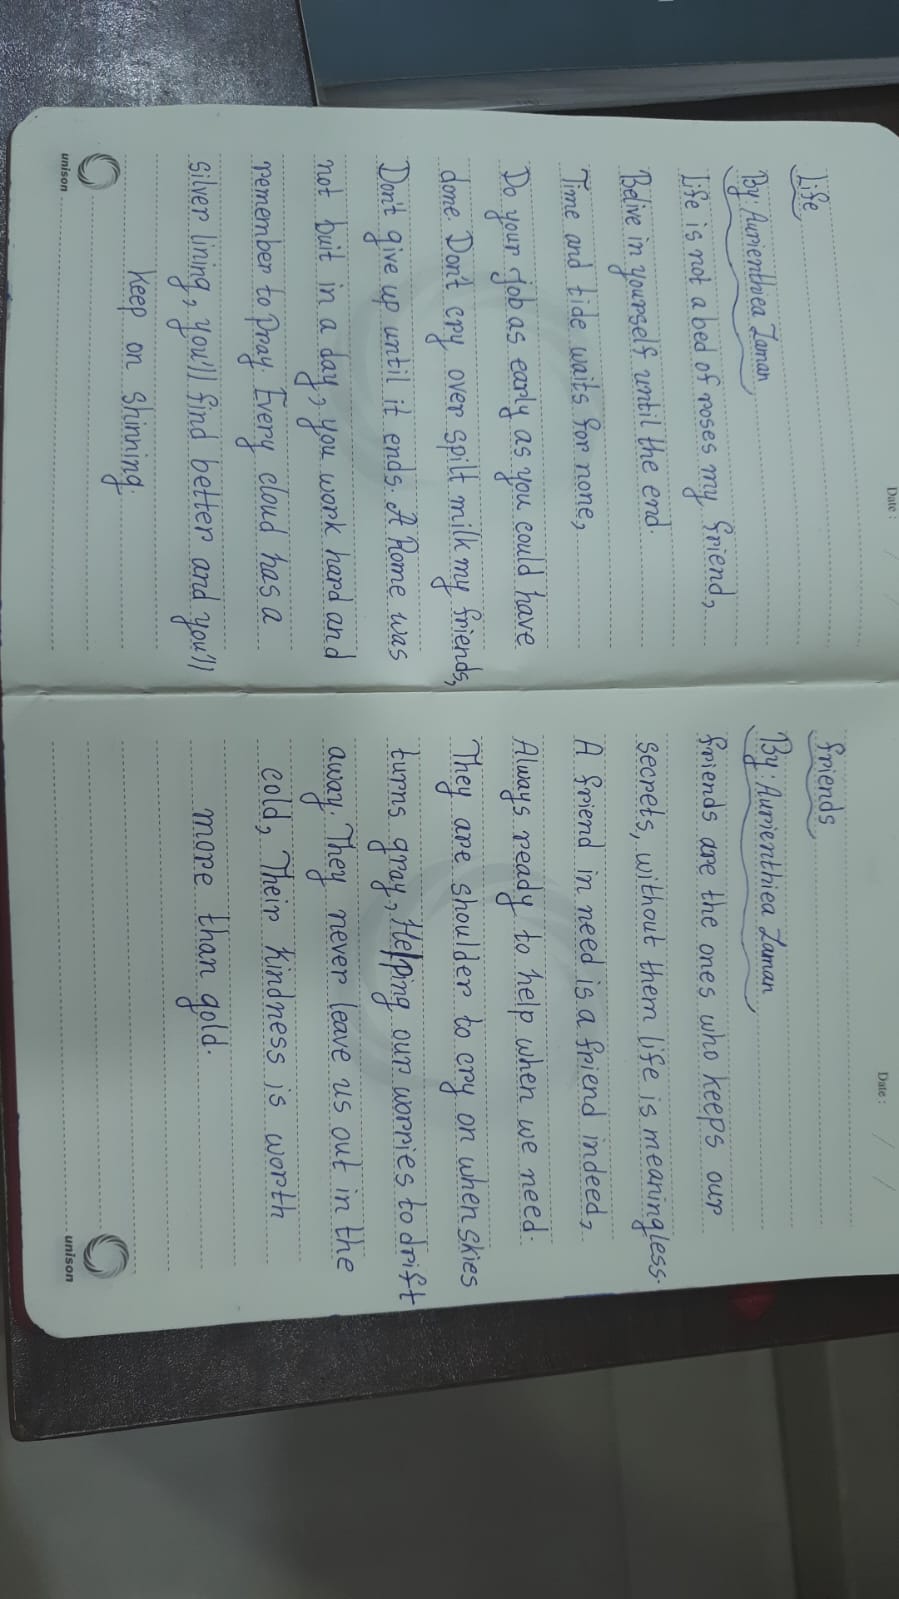 Date :
Life
By: Aurienthiea Zaman
Life is not a bed of roses my friend,
Belive in yourself until the end.
Time and tide waits for none,
Do your job as early as you could have
done. Don't cry over spilt milk my friends,
Don't give up until it ends. A Rome was
not buit in a day, you work hard and
remember to pray. Every cloud has a
silver lining, you'll find better and you'll
keep on shinning.
unison
Date :
friends
By: Aurienthiea Zaman
friends are the ones who keeps our
secrets, without them life is meaningless.
A friend in need is a friend indeed,
Always ready to help when we need.
They are shoulder to cry on when skies
turns gray, Helping our worries to drift
away. They never leave us out in the
cold, Their kindness is worth
more than gold.
unison